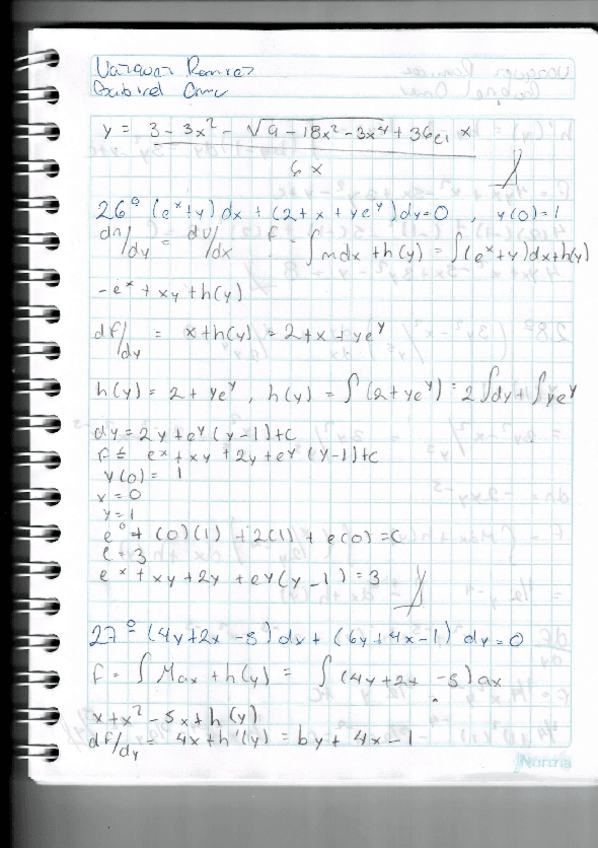 Vazquez Ramirez
Gabriel Omar
y = 3 - 3x² - √9 - 18x² - 3x⁴ + 36c₁ x
6 x
26º (eˣ+y) dx + (2 + x + yeʸ) dy = 0 , y(0) = 1
dM/dy = dN/dx f = ∫ mdx + h(y) = ∫(eˣ+y)dx+h(y)
- eˣ + xy + h(y)
df/dy = x+h(y) = 2+x+yeʸ
h(y) = 2 + yeʸ , h(y) = ∫ (2+yeʸ) = 2∫dy + ∫yeʸ
dy = 2y + eʸ (y-1)+c
eˣ + xy + 2y + eʸ (y-1)+c
y(0) = 1
x = 0
y = 1
e⁰ + (0)(1) + 2(1) + e(0) = c
c = 3
eˣ + xy + 2y + eʸ(y-1) = 3
27º (4y+2x-5) dx + (6y+4x-1) dy = 0
f = ∫ Mdx + h(y) = ∫ (4y+2x -5) dx
x+x² - 5x + h(y)
df/dy = 4x+h'(y) = 6y + 4x - 1
Norma